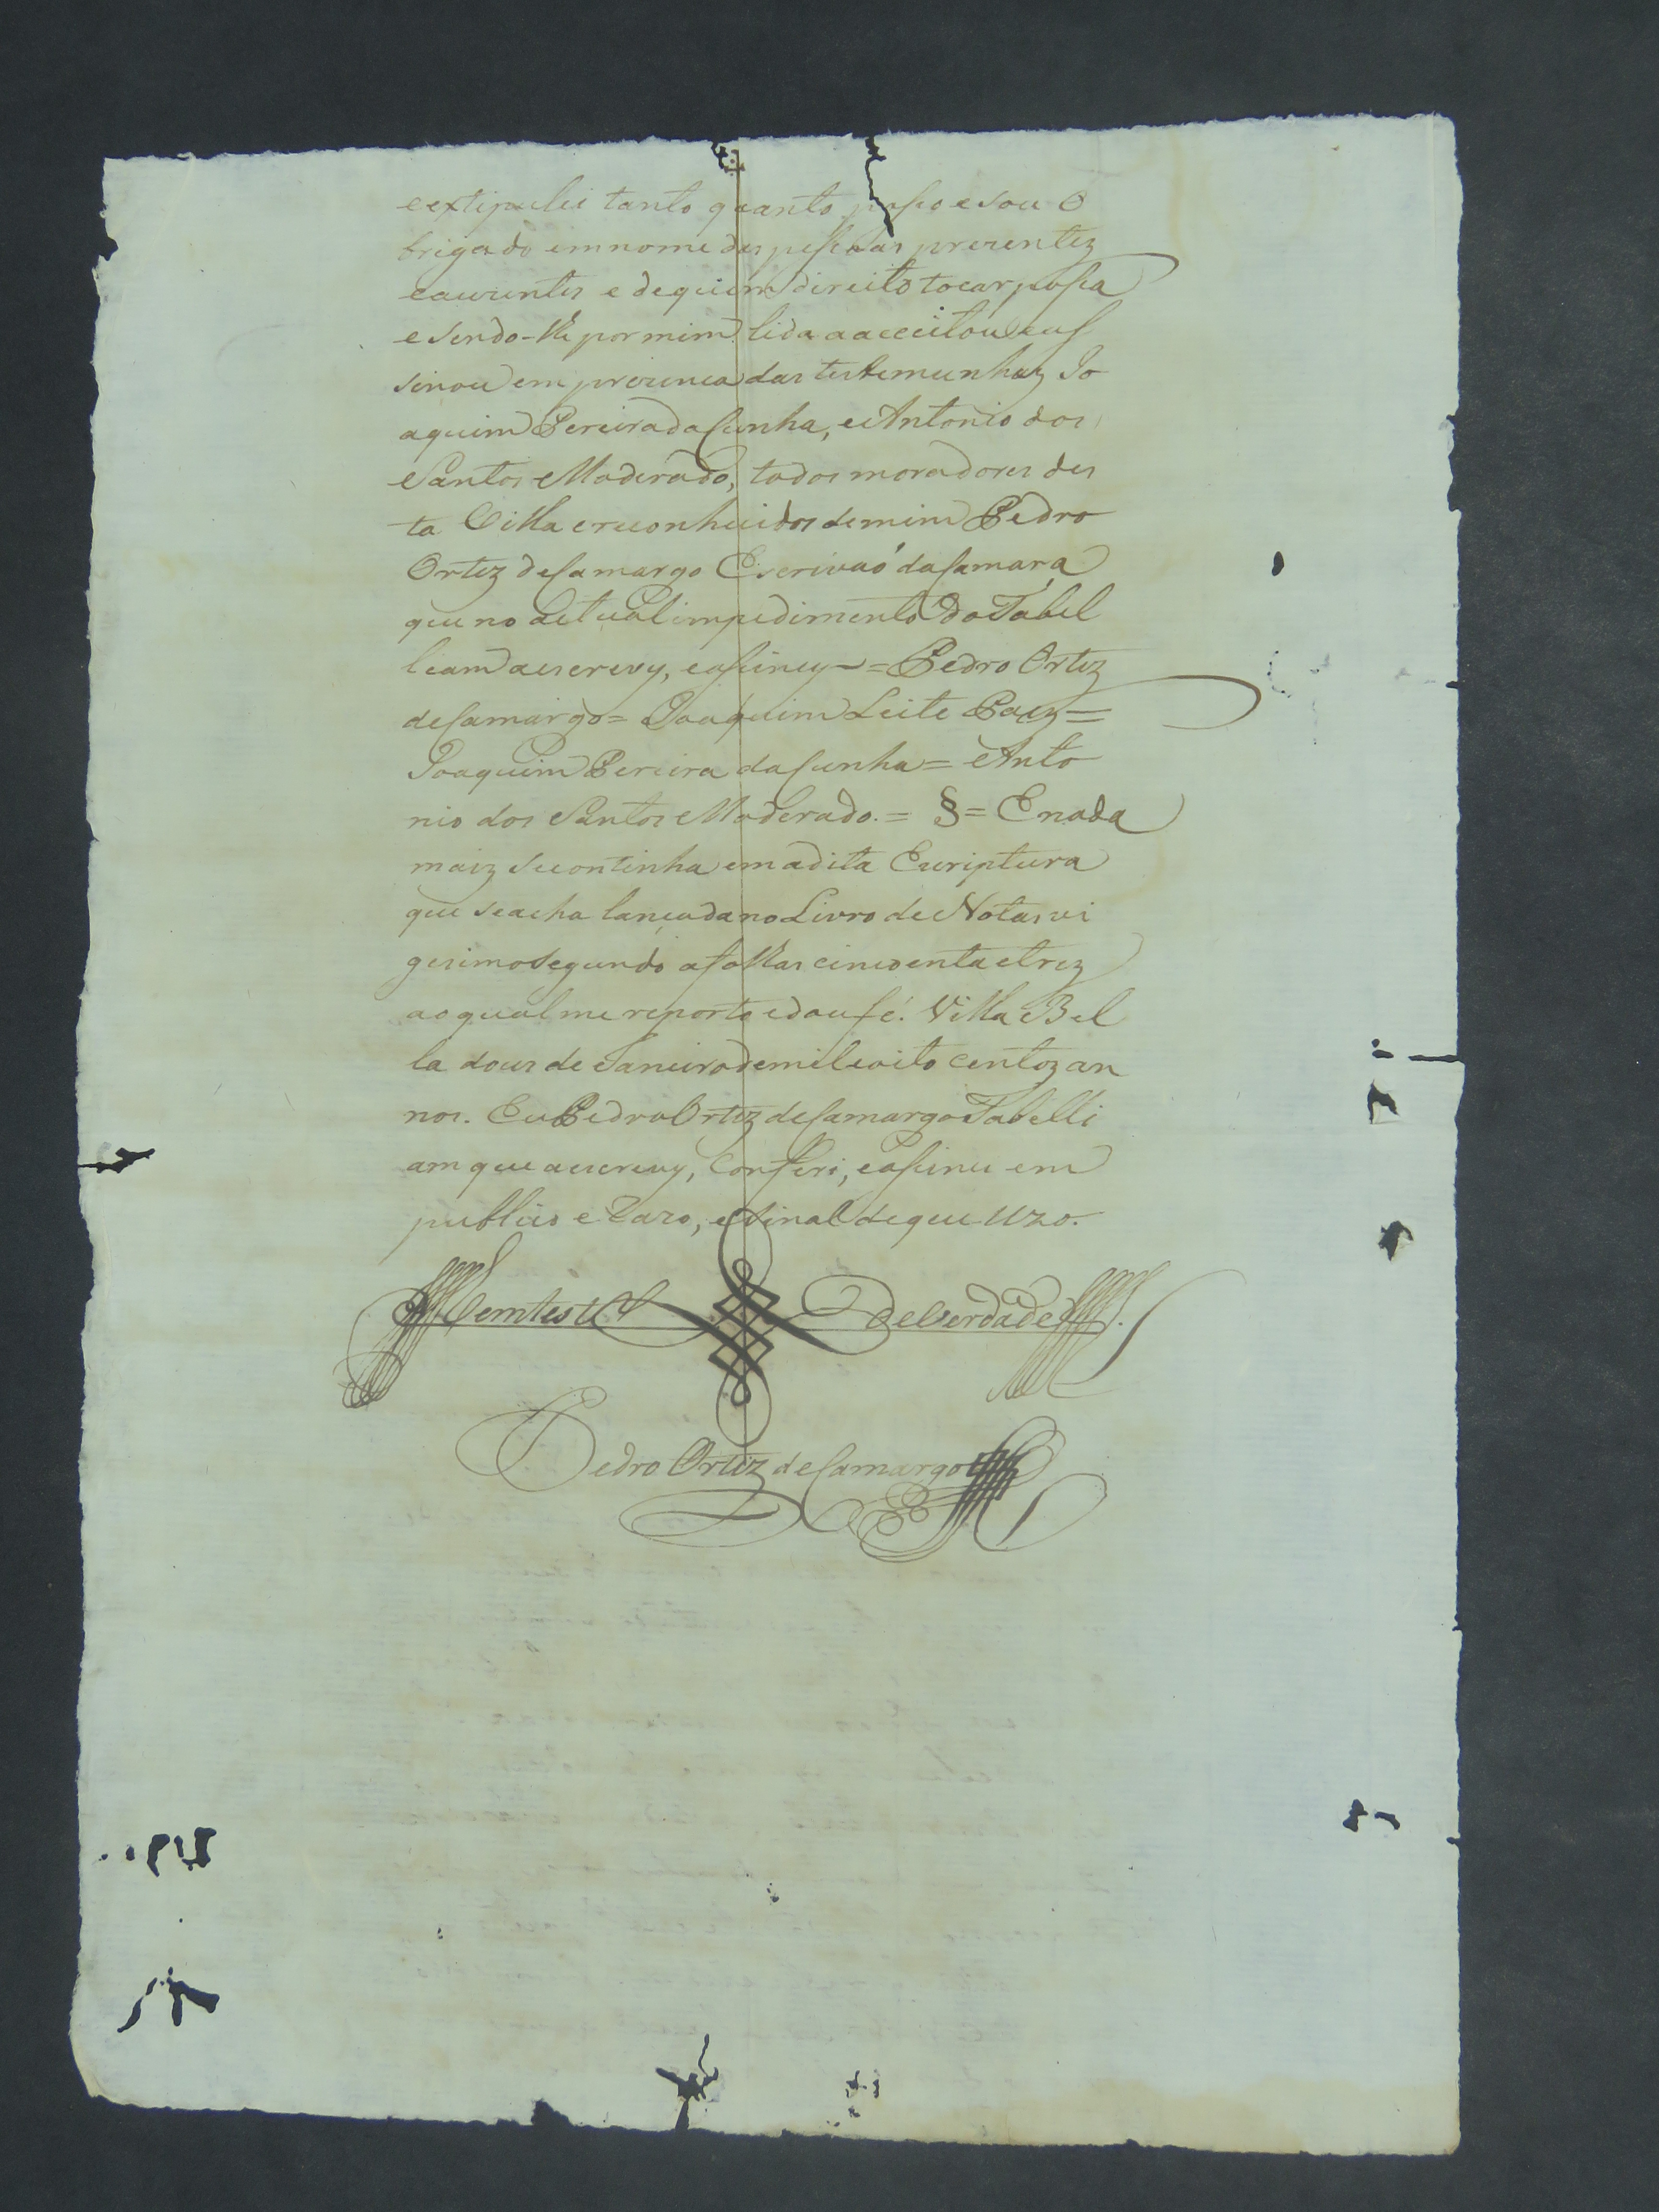 eextipulei tanto quanto posso esou O
brigado emnome das pessoas prezentez
eauzentes e dequem direito tocar possa
e sendo-lhe por mim lida aacceitou eas
sinou em prezença das testemunhaz Jo
aquim Pereira da Cunha, e Antonio dos
Santos Moderado, todos moradores des
ta Villa ereconhecidos demim Pedro
Ortiz deCamargo Escrivaõ daCamara
que no actual impedimento do Tabel
leam aescrevy, eassiney = Pedro Ortiz
deCamargo = Joaquim Leite Paez =
Joaquim Pereira daCunha = Anto
nio dos Santos Moderado. = § = Enada
maiz secontinha em adita Escriptura
que seacha lançada no Livro de Notas vi
gesimo segundo afolhas cincoenta etrez
aoqual me reporto edoufé. Villa Bel
la dous de Janeiro demil eoito centoz an
nos. Eu Pedro Ortiz deCamargo Tabelli
am que aescrevy, Conferi, eassinei em
publico e Razo, e Sinal deque uzo.
Emtest.º DeVerdade
Pedro Ortiz deCamargo